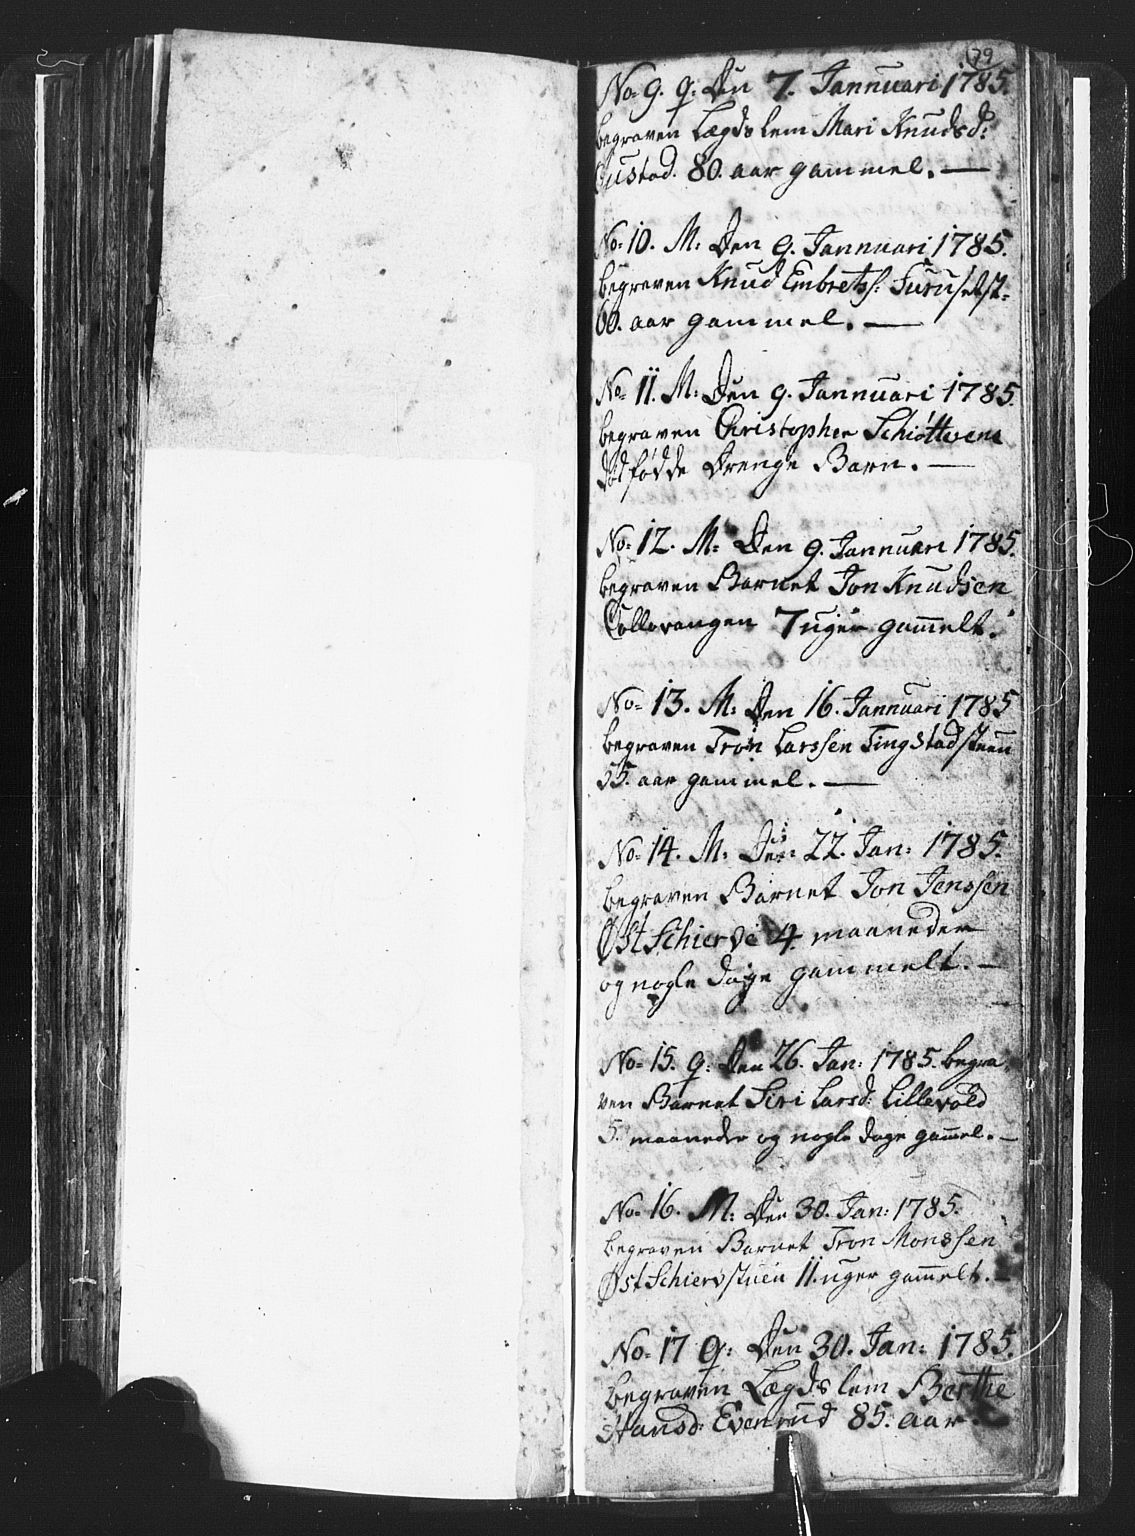 179
No= 9. Q: Den 7. Jannuari 1785.
begraven Lægdslem Mari Knudsd:
80. aar gammel. —
No= 10. M: Den 9. Jannuari 1785.
begraven Knud Embretss: Furusetst=
60. aar gammel. —
No= 11. M: Den 9. Jannuari 1785.
begraven Christopher Schiøttvens
dødfødde Drenge Barn. —
No= 12. M: Den 9. Jannuari 1785.
begraven Barnet Jon Knudsen
7 uger gam̄elt.
No= 13. M: Den 16. Jannuari 1785
begraven Tron Larssen Tingstadstuen
55. aar gammel. —
No= 14. M: Den: 22. Jan: 1785.
begraven Barnet Jon Jenssen
Øst Schierve 4 maaneder
og nogle dage gammelt. —
No= 15. Q: Den 26. Jan: 1785. begra
ven Barnet Siri Larsd: Lillevold
5. maaneder og nogle dage gam̄el. —
No= 16. M: Den 30. Jan: 1785.
begraven Barnet Tron Monssen
Øst Schiervstuen 11. uger gam̄elt. —
No= 17 Q: Den 30. Jan: 1785.
begraven Lægdslem Berthe
Hansd: Evenrud 85. aar.